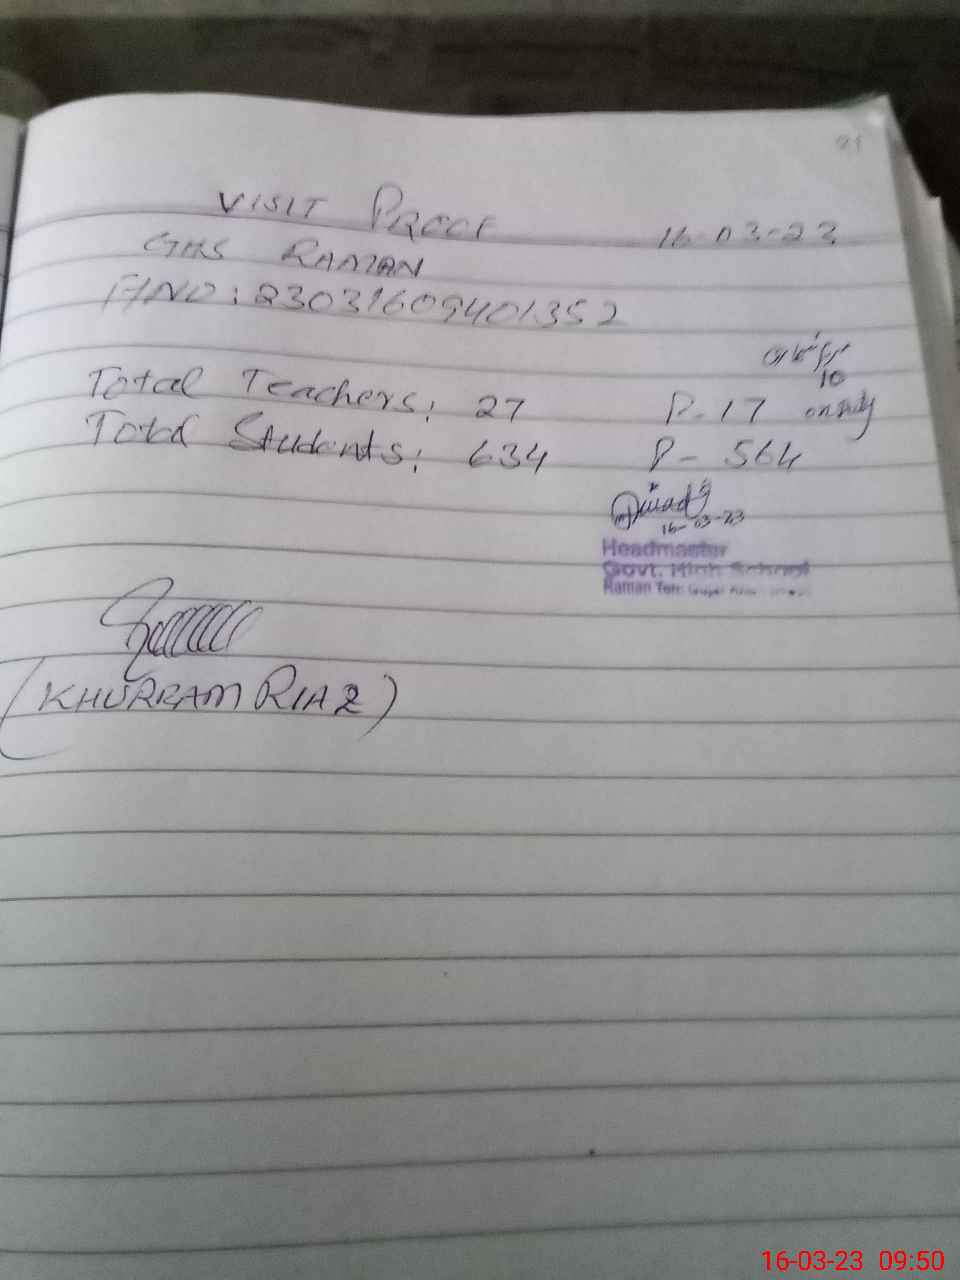 21
VISIT PROOF 16-03-23
GHS RAMAN
A/NO: 23031609401352
10
Total Teachers: 27 P-17 on duty
Total Students: 634 P- 564
16-03-23
Headmaster
Govt. High School
Raman Teh:
(KHURRAM RIAZ)
16-03-23 09:50